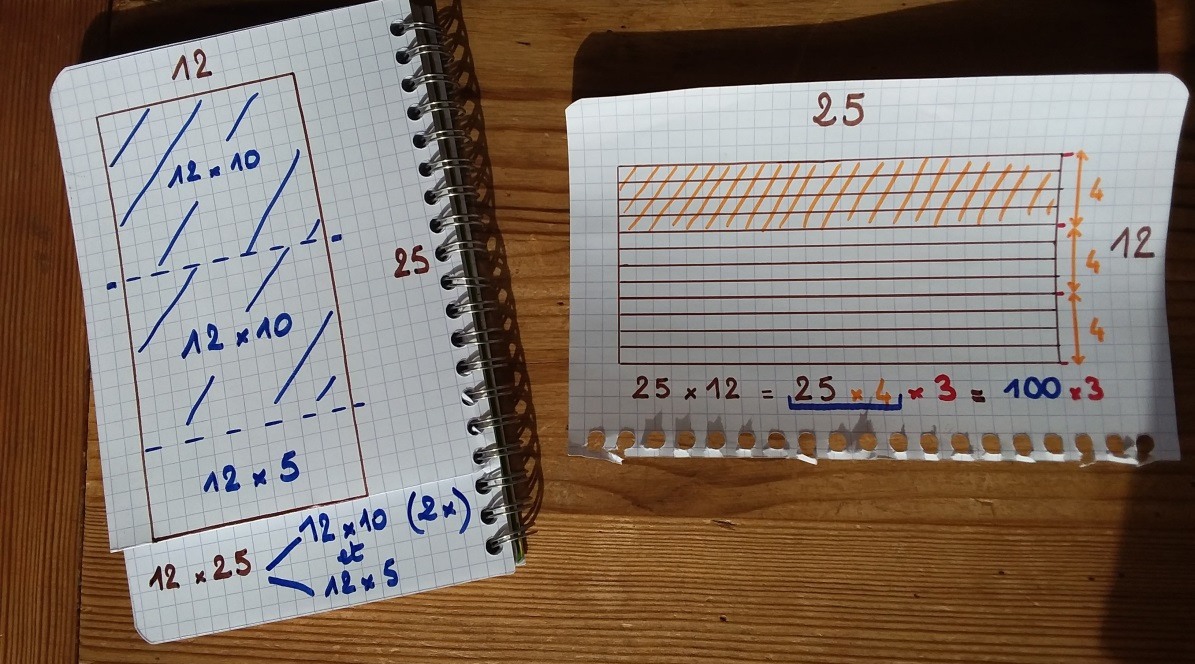 12
12 × 10
25
12 × 10
12 × 5
12 × 25
12 × 10 (2×)
et
12 × 5
25
4
4
12
4
25 × 12 = 25 × 4 × 3 = 100 × 3